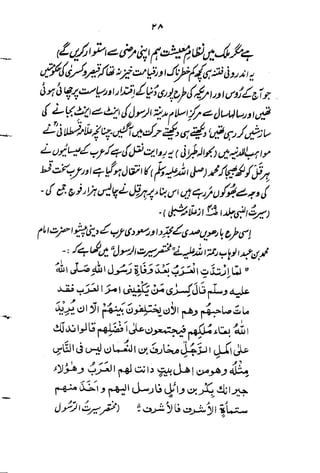 ۲۸
ہے مگر ملک میں نظام معیشت ہم اپنی مرضی سے استوار کریں گے)
یہ اندرونی فتنہ ہی کچھ کم خطرناک اور قیامت خیز نہ تھا کہ قیصر و کسریٰ کی حکومتیں
جو آج کے روس اور امریکہ کی طرح پوری دنیا کے اقتدار اور سیاست پر چھائی ہوئی
تھیں اور سالہا سال سے مرکز اسلام مدینۃ الرسول کی اینٹ سے اینٹ بجانے کی
سازشیں کر رہی تھیں دیکھتے ہی دیکھتے حرکت میں آگئیں چنانچہ علامہ قسطلانی نے
مواہب اللدنیہ میں (بحوالہ طبرانی) یہ روایت نقل کی ہے کہ عرب کے عیسائیوں نے
ہرقل کو لکھ بھیجا کہ محمد (صلی اللہ علیہ وسلم) کا انتقال ہوگیا ہے اور عرب سخت قحط
کی وجہ سے بھوکوں مر رہے ہیں اس بناء پر ہرقل نے چالیس ہزار فوج جمع کی۔
(سیرت النبی جلد ا از علامہ شبلی)
اسی طرح بارھویں صدی کے مجدد اور سعودی عرب کے دینی پیشوا حضرت امام
محمد بن عبد الوہاب رحمۃ اللہ علیہ نے "مختصر سیرت الرسول" میں لکھا ہے کہ:۔
"لما ارتدت العرب بعد وفاة رسول الله صلى الله
عليه وسلم قال كسرى من يكفينى امر العرب فقد
مات صاحبهم وهم الأن يختلفون بينهم الا ان يريد
الله بقاء ملكهم فيجتمعون على افضلهم قالوا ندلك
على اكمل الرجل مخارق بن النعمان ليس فى الناس
مثله وهو من اهل بيت دانت لهم العرب وهؤلاء
جيرانك بكر بن وائل فارسل اليهم و اخذ منهم
ستمأة الأشرف فالأشرف" (مختصر سیرت الرسول